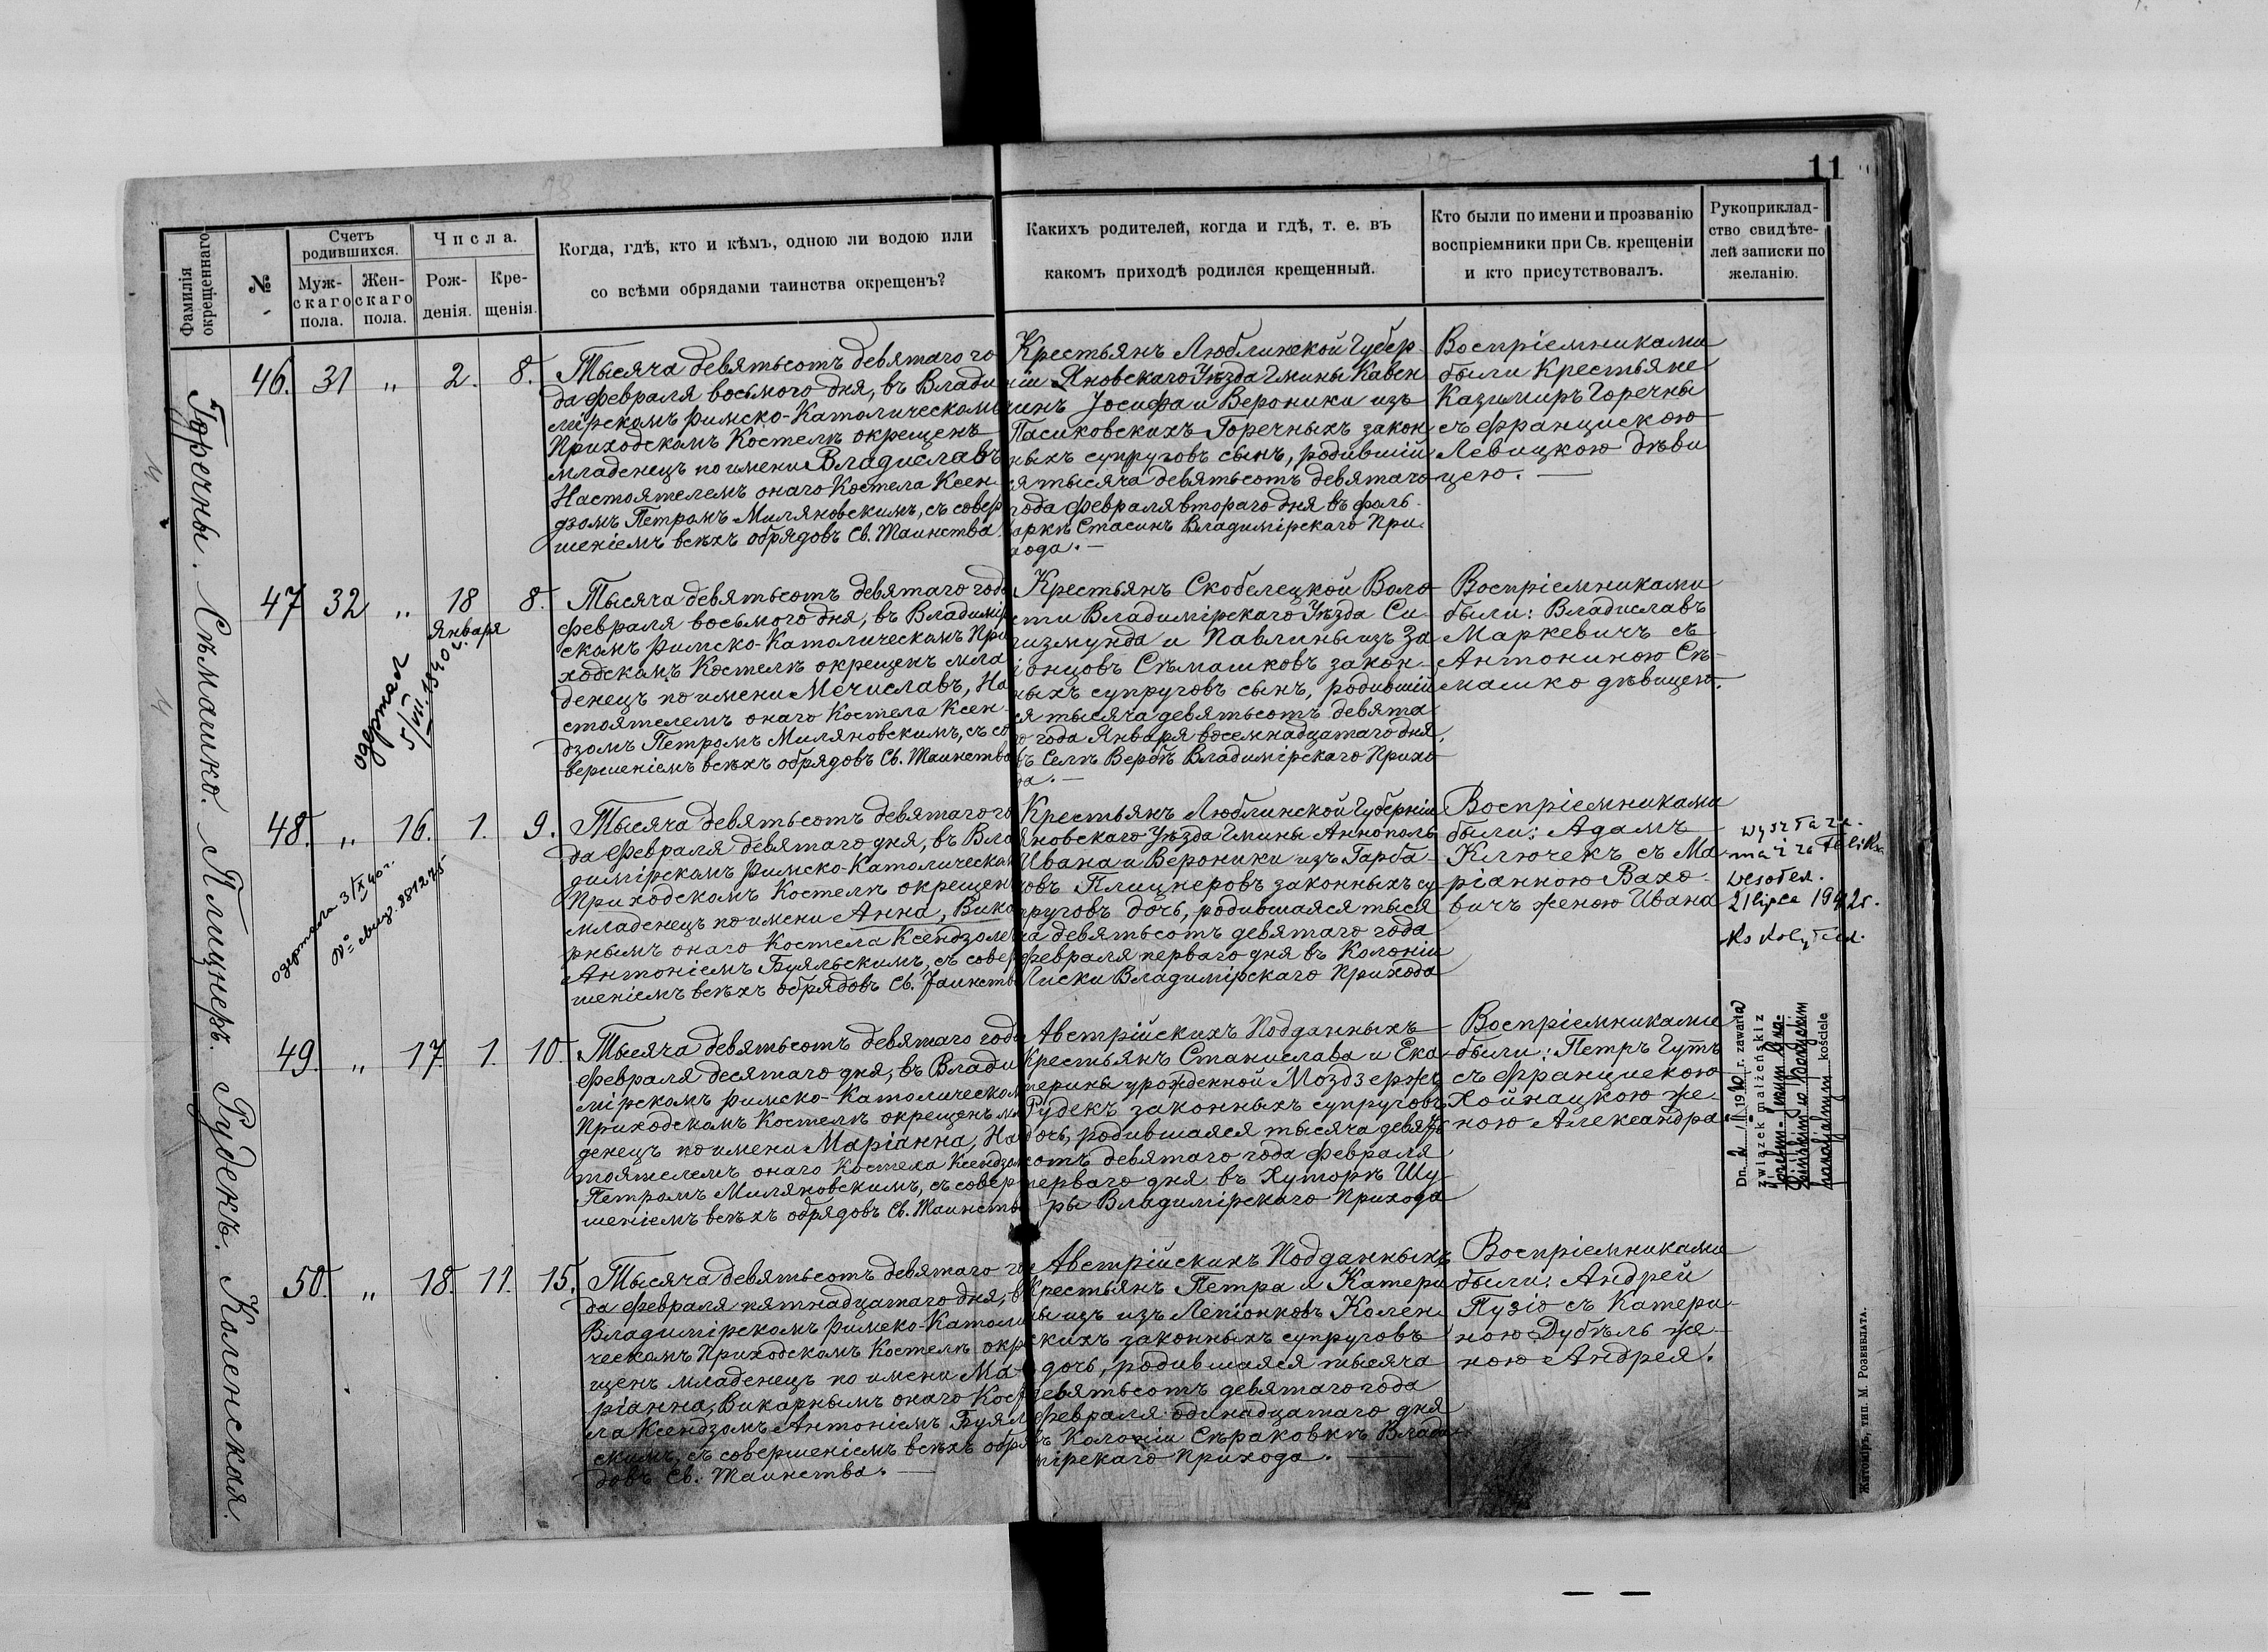 11
Фамилія окрещеннаго
№
Счетъ родившихся.
Муж-
скаго
пола.
Жен-
скаго
пола.
Числа.
Рож-
денія.
Кре-
щенія.
Когда, гдѣ, кто и кѣмъ, одною ли водою или
со всѣми обрядами таинства окрещенъ?
Какихъ родителей, когда и гдѣ, т. е. въ
какомъ приходѣ родился крещенный.
Кто были по имени и прозванію
воспріемники при Св. крещеніи
и кто присутствовалъ.
Рукоприклад-
ство свидѣте-
лей записки по
желанію.
Горечны. Съмашко. Плицнеръ. Рудекъ. Коленская.
46. 31 " 2. 8.
Тысяча девятьсотъ девятаго го
да февраля восьмого дня, въ Влади
мірскомъ Римско-Католическомъ
Приходскомъ Костелѣ окрещенъ
младенецъ по имени Владиславъ
Настоятелемъ онаго Костела Ксен
дзомъ Петромъ Миляновскимъ, съ совер
шеніемъ всѣхъ обрядовъ Св. Таинства.
Крестьянъ Люблинской Губер
ніи Яновскаго Уѣзда Гмины Кавен
чинъ Іосифа и Вероники изъ
Пасиковскихъ Горечныхъ закон
ныхъ супруговъ сынъ, родившій
ся тысяча девятьсотъ девятаго
года февраля втораго дня въ фоль
варкѣ Стасинъ Владимірскаго При
хода.—
Воспріемниками
были Крестьяне
Казимиръ Горечны
съ Францискою
Левицкою дѣви
цею.—
47 32 " 18 8.
Января
одержал
5/VII 1940 г.
Тысяча девятьсотъ девятаго года
февраля восьмого дня, въ Владимір
скомъ Римско-Католическомъ При
ходскомъ Костелѣ окрещенъ мла
денецъ по имени Мечиславъ, На
стоятелемъ онаго Костела Ксен
дзомъ Петромъ Миляновскимъ, съ со
вершеніемъ всѣхъ обрядовъ Св. Таинства
Крестьянъ Скобелецкой Воло
сти Владимірскаго Уѣзда Си
гизмунда и Павлины изъ За
іонцовъ Съмашковъ закон-
ныхъ супруговъ сынъ, родившій
ся тысяча девятьсотъ девята
го года Января восемнадцатаго дня,
въ Селѣ Вербѣ Владимірскаго Прихо
да.—
Воспріемниками
были: Владиславъ
Маркевичъ съ
Антониною Съ-
машко дѣвицею.
48. " 16. 1. 9.
одержала 3/X 40 г.
№ свид. 881275
Тысяча девятьсотъ девятаго го
да Февраля девятаго дня, въ Вла
димірскомъ Римско-Католическомъ
Приходскомъ Костелѣ окрещенъ
младенецъ по имени Анна, Вика
рнымъ онаго Костела Ксендзомъ
Антоніемъ Буяльскимъ, съ совер
шеніемъ всѣхъ обрядовъ Св. Таинства
Крестьянъ Люблинской Губерніи
Яновскаго Уѣзда Гмины Аннополь
Ивана и Вероники изъ Гарба
човъ Плицнеровъ законныхъ су-
пруговъ дочь, родившаяся тыся
ча девятьсотъ девятаго года
февраля перваго дня въ Колоніи
Лиски Владимірскаго Прихода
Воспріемниками
были: Адамъ
Ключекъ съ Ма-
ріанною Вахо-
вичъ женою Ивана
wyszła za
mąż za Feliksa
21 lipca 1942 r.
49. " 17. 1. 10.
Тысяча девятьсотъ девятаго года
февраля десятаго дня, въ Влади
мірскомъ Римско-Католическомъ
Приходскомъ Костелѣ окрещенъ мла
денецъ по имени Маріанна, Нас
тоятелемъ онаго Костела Ксендзомъ
Петромъ Миляновскимъ, съ совер
шеніемъ всѣхъ обрядовъ Св. Таинства
Австрійскихъ Подданныхъ
Крестьянъ Станислава и Ека
терины урожденной Моздзержъ
Рудекъ законныхъ супруговъ
дочь, родившаяся тысяча девять
сотъ девятаго года февраля
перваго дня въ Хуторѣ Шу
ры Владимірскаго Прихода
Воспріемниками
были: Петръ Гутъ
съ Францискою
Хойнацкою же-
ною Александра
Dn. 2/II 1930 r. zawarła
związek małżeński z
parafjalnym kościele
50. " 18. 11. 15.
Тысяча девятьсотъ девятаго го
да февраля пятнадцатаго дня, въ
Владимірскомъ Римско-Католи
ческомъ Приходскомъ Костелѣ окре
щенъ младенецъ по имени Ма-
ріанна, Викарнымъ онаго Косте
ла Ксендзомъ Антоніемъ Буяль
скимъ, съ совершеніемъ всѣхъ обря
довъ Св. Таинства.—
Австрійскихъ Подданныхъ
Крестьянъ Петра и Катери
ны изъ изъ Лепіонковъ Колен
скихъ законныхъ супруговъ
дочь, родившаяся тысяча
девятьсотъ девятаго года
февраля одинадцатаго дня
въ Колоніи Съраковкѣ Влади
мірскаго Прихода.—
Воспріемниками
были: Андрей
Пузіо съ Катери-
ною Дубѣль же-
ною Андрея.
Житоміръ, тип. М. Розенблата.